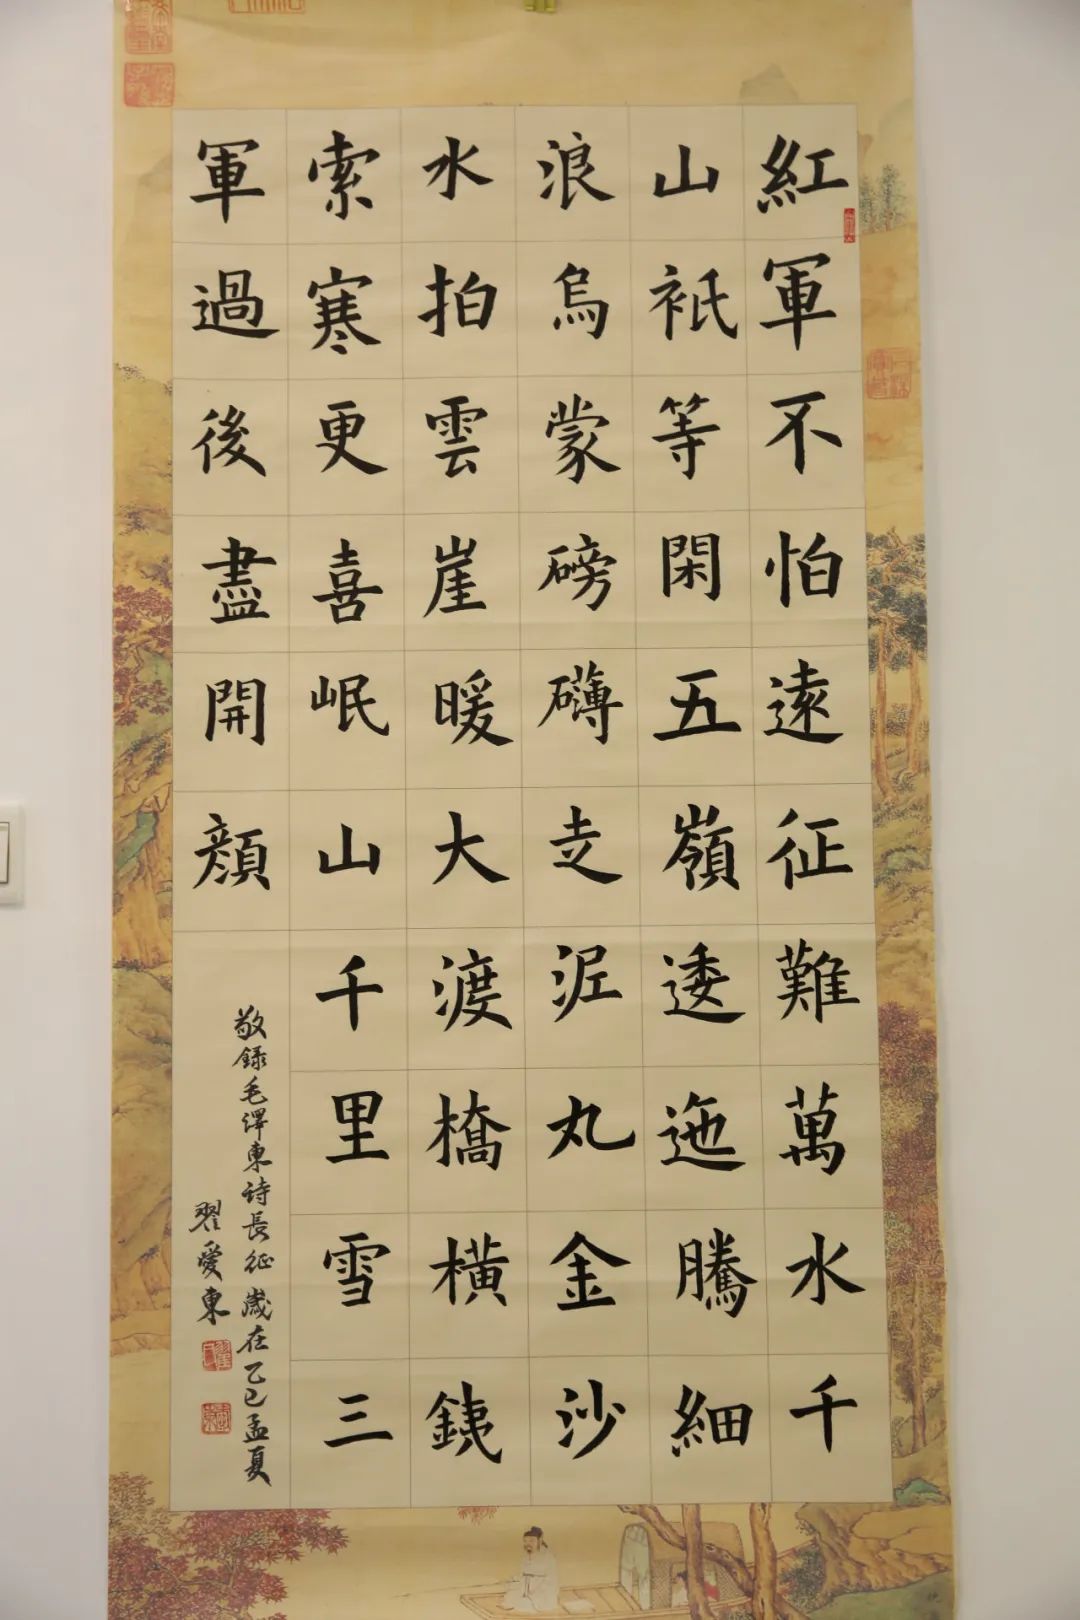 紅軍不怕遠征難萬水千
山衹等閑五嶺逶迤騰細
浪烏蒙磅礴走泥丸金沙
水拍雲崖暖大渡橋橫鐵
索寒更喜岷山千里雪三
軍過後盡開顏
敬錄毛澤東詩長征 歲在乙巳孟夏
翟愛東